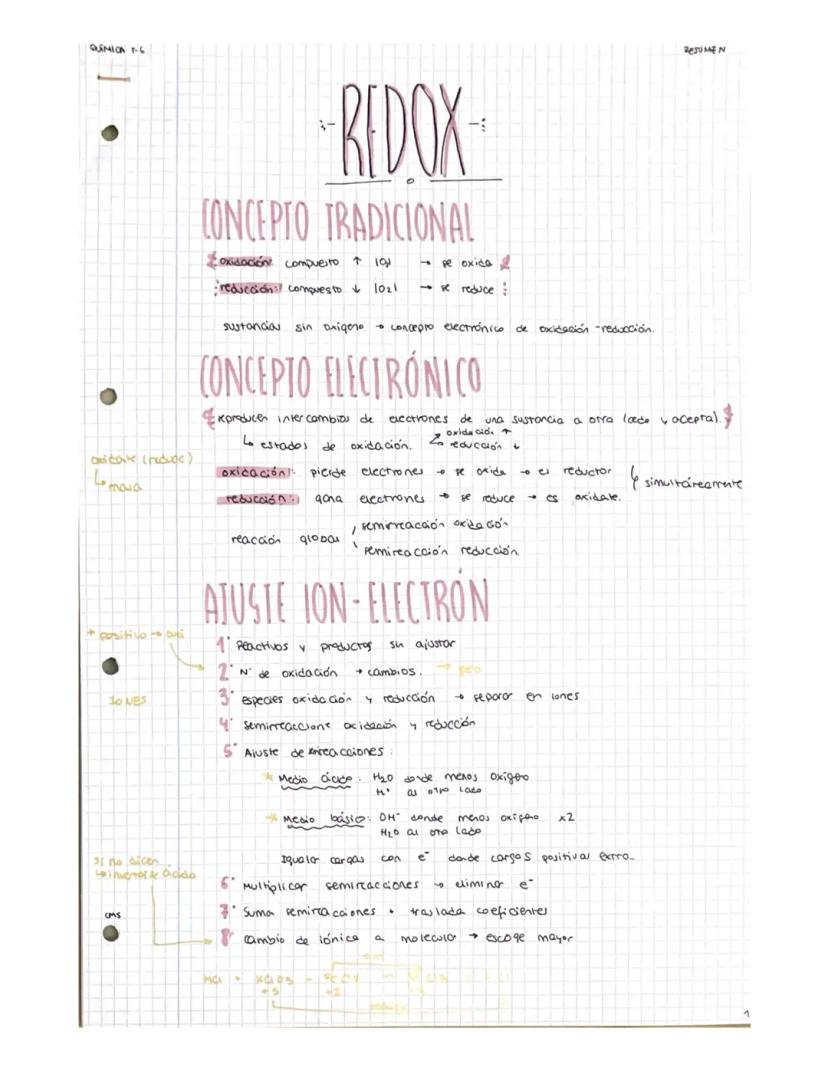 QUÍMICA T-6
RESUMEN
REDOX
CONCEPTO TRADICIONAL
oxidación: compuesto ↑ |O₂| → se oxida
reducción: compuesto ↓ |O₂| → se reduce
sustancias sin oxígeno → concepto electrónico de oxidación-reducción.
CONCEPTO ELECTRÓNICO
producen intercambios de electrones de una sustancia a otra (cede y acepta).
↳ estados de oxidación. oxidación ↑
reducción ↓
oxidante (reduce)
↳
oxidación: pierde electrones → se oxida → es reductor
simultáneamente
reducción: gana electrones → se reduce → es oxidante.
reacción global
semirreacción oxidación
semireacción reducción
AJUSTE ION-ELECTRÓN
+ positivo → oxi
1º Reactivos y productos sin ajustar
2º Nº de oxidación → cambios.
IONES
3º especies oxidación y reducción → separar en iones
4º semirreaccione oxidación y reducción
5º Ajuste de
* Medio ácido: H2O donde menos oxígeno
H⁺ al otro lado
* Medio básico: OH⁻ donde menos oxígeno x2
H2O al otro lado
Igualar cargas con e⁻ donde cargas positivas
si no dicen
↳ ácido
6º Multiplicar semireacciones → elimino e⁻
7º Suma semireacciones + traslada coeficientes
8º cambio de iónica a molecular → escoge mayor
1